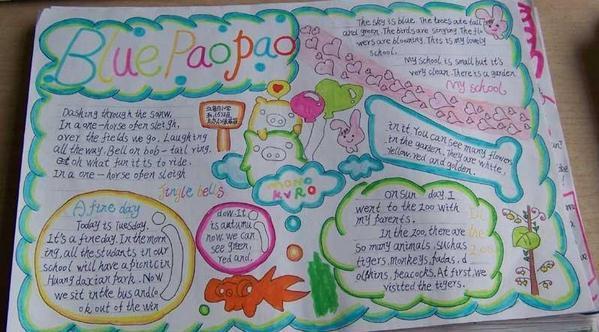 Blue Paopao
The sky is blue. The trees are tall
and green. The birds are singing. The flo
wers are blooming. This is my lovely
school.
My school is small but it's
very clean. There is a garden
My school
in it. You can see many flowers
in the garden. They are white,
Yellow, red and golden.
Dashing through the sonw,
In a one-horse ofen sleigh,
over the fields we go. Laughing
all the way, Bell on bob-tail ring.
oh what fun it is to ride.
In a one-horse ofen sleigh
Jingle bells
MONO
KURO
A fine day
Today is Tuesday.
It's a fine day. In the morn
ing, all the students in our
school will have a picnic in
Huang daxian Park. Now
we sit in the bus and lo
ok out of the win
dow. It is
autumn
now. we can
see green,
red and.
On sun day. I
went to the zoo with
my parents.
In the zoo, there are
So many animals. such as
tigers, monkeys, Padas, d
olphins, peacocks. At first, we
visited the tigers.